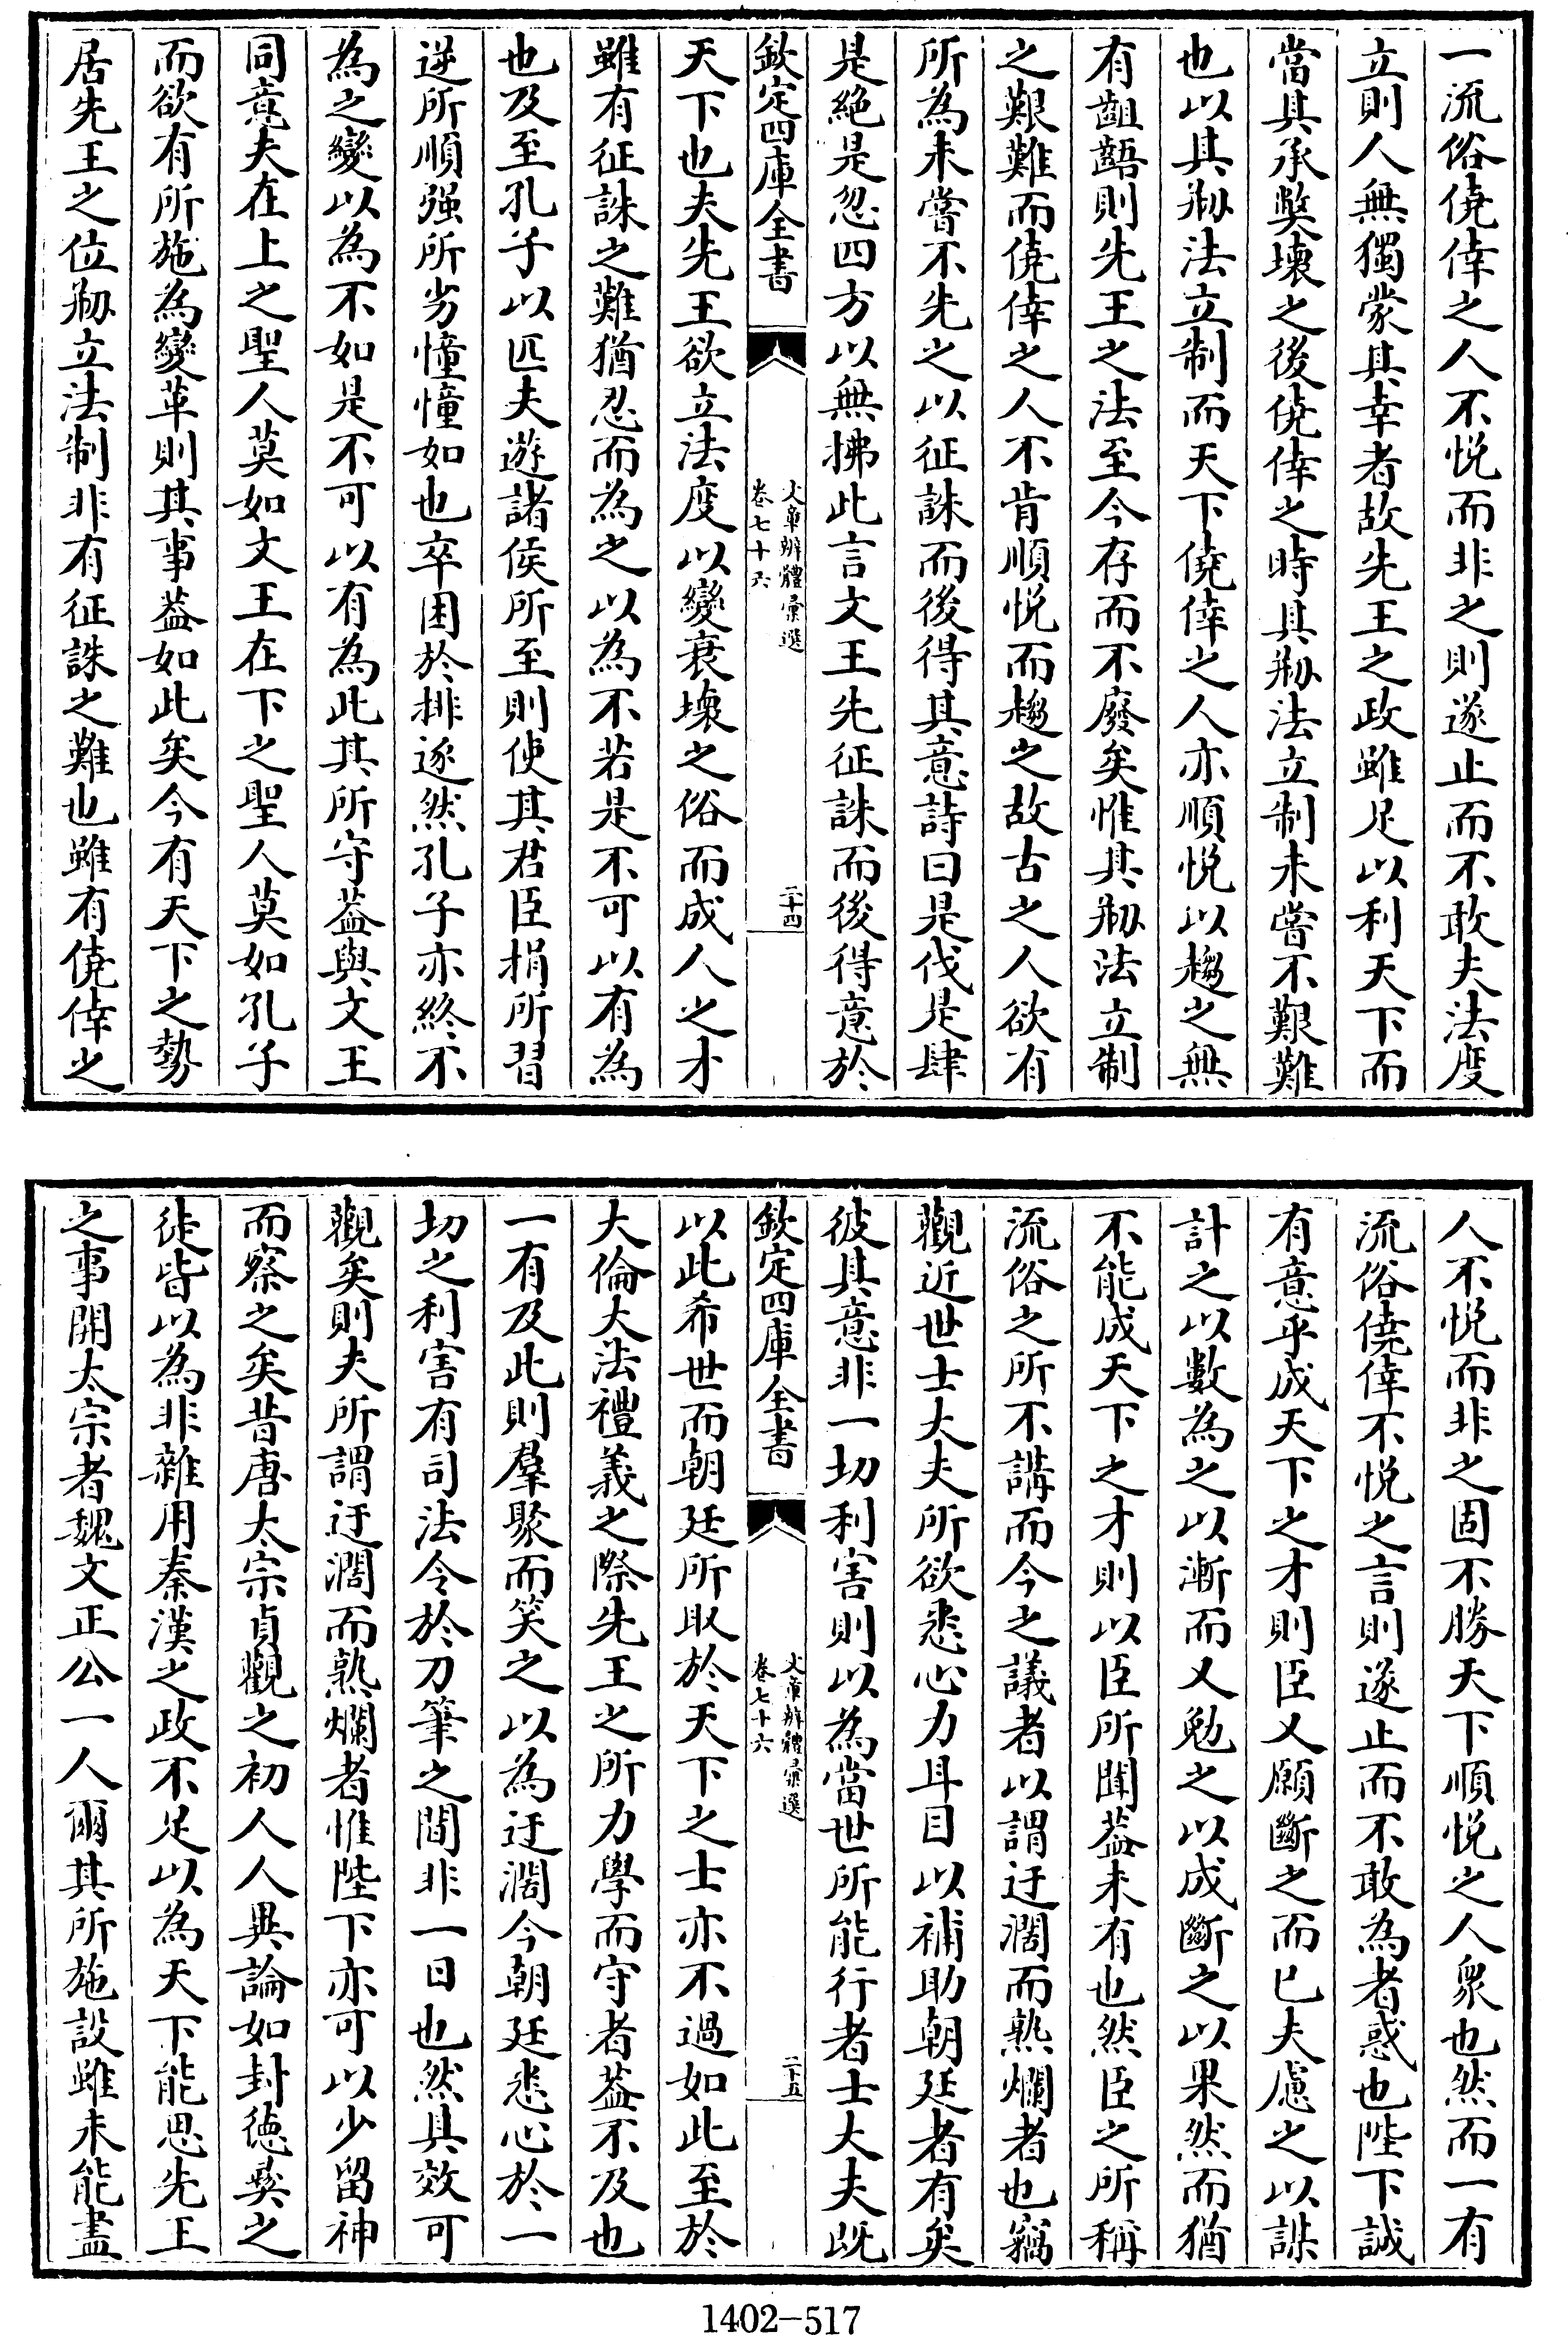 一流俗僥倖之人不悦而非之則遂止而不敢夫法度
立則人無獨蒙其幸者故先王之政雖足以利天下而
當其承弊壊之後僥倖之時其剏法立制未嘗不艱難
也以其剏法立制而天下僥倖之人亦順悦以趨之無
有齟齬則先王之法至今存而不廢矣惟其剏法立制
之艱難而僥倖之人不肯順悦而趨之故古之人欲有
所為未嘗不先之以征誅而後得其意詩曰是伐是肆
是絶是忽四方以無拂此言文王先征誅而後得意於
欽定四庫全書
文章辨體彚選
卷七十六
二十四
天下也夫先王欲立法度以變衰壊之俗而成人之才
雖有征誅之難猶忍而為之以為不若是不可以有為
也及至孔子以匹夫遊諸侯所至則使其君臣捐所習
逆所順强所劣憧憧如也卒困於排逐然孔子亦終不
為之變以為不如是不可以有為此其所守葢與文王
同意夫在上之聖人莫如文王在下之聖人莫如孔子
而欲有所施為變革則其事葢如此矣今有天下之勢
居先王之位剏立法制非有征誅之難也雖有僥倖之
人不悦而非之固不勝天下順悦之人衆也然而一有
流俗僥倖不悦之言則遂止而不敢為者惑也陛下誠
有意乎成天下之才則臣又願斷之而已夫慮之以謀
計之以數為之以漸而又勉之以成斷之以果然而猶
不能成天下之才則以臣所聞葢未有也然臣之所稱
流俗之所不講而今之議者以謂迂濶而熟爛者也竊
觀近世士大夫所欲悉心力耳目以補助朝廷者有矣
彼其意非一切利害則以為當世所能行者士大夫既
欽定四庫全書
文章辨體彚選
卷七十六
二十五
以此希世而朝廷所取於天下之士亦不過如此至於
大倫大法禮義之際先王之所力學而守者葢不及也
一有及此則羣聚而笑之以為迂濶今朝廷悉心於一
切之利害有司法令於刀筆之間非一日也然其效可
觀矣則夫所謂迂濶而熟爛者惟陛下亦可以少留神
而察之矣昔唐太宗貞觀之初人人異論如封徳彝之
徒皆以為非雜用秦漢之政不足以為天下能思先王
之事開太宗者魏文正公一人爾其所施設雖未能盡
1402-517